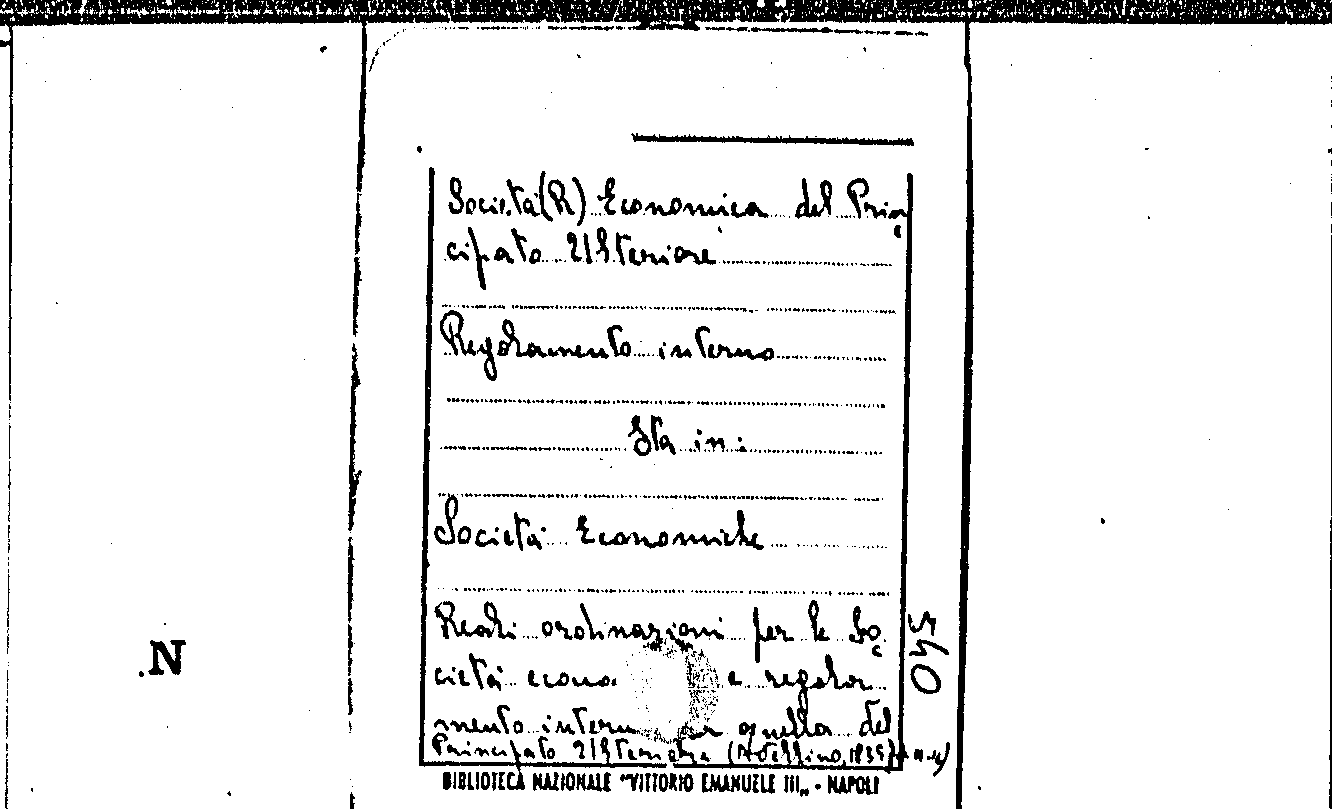 Società (R) Economica del Prin
cipato Ulteriore
Regolamento interno
Sta in:
Società Economiche
Reali ordinazioni per le So
cietà econo e regola
mento interno quella del
Principato Ulteriore (Avellino, 1835)
BIBLIOTECA NAZIONALE "VITTORIO EMANUELE III„ - NAPOLI
540
.N